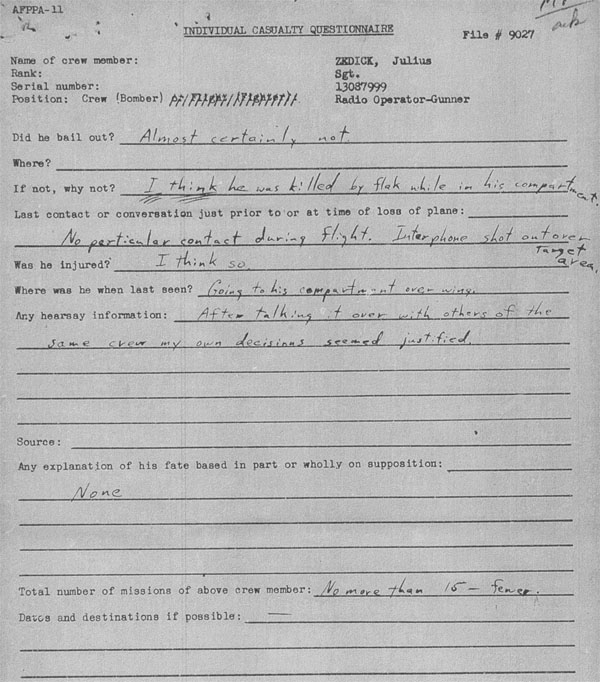 AFPPA-11
INDIVIDUAL CASUALTY QUESTIONNAIRE
File # 9027
Name of crew member: ZEDICK, Julius
Rank: Sgt.
Serial number: 13087999
Position: Crew (Bomber) Radio Operator-Gunner
Did he bail out? Almost certainly not.
Where?
If not, why not? I think he was killed by flak while in his compartment.
Last contact or conversation just prior to or at time of loss of plane:
No particular contact during flight. Interphone shot out over
Target area.
Was he injured? I think so.
Where was he when last seen? Going to his compartment over wing.
Any hearsay information: After talking it over with others of the
same crew my own decisions seemed justified.
Source:
Any explanation of his fate based in part or wholly on supposition:
None
Total number of missions of above crew member: No more than 15 - fewer.
Dates and destinations if possible: —